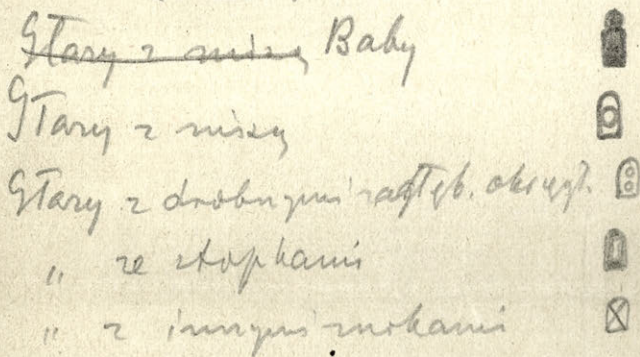 ~~Głazy z niszą~~ Baby
Głazy z niszą
Głazy z drobnymi zagłęb. okrągł.
„ ze stopkami
„ z innymi znakami